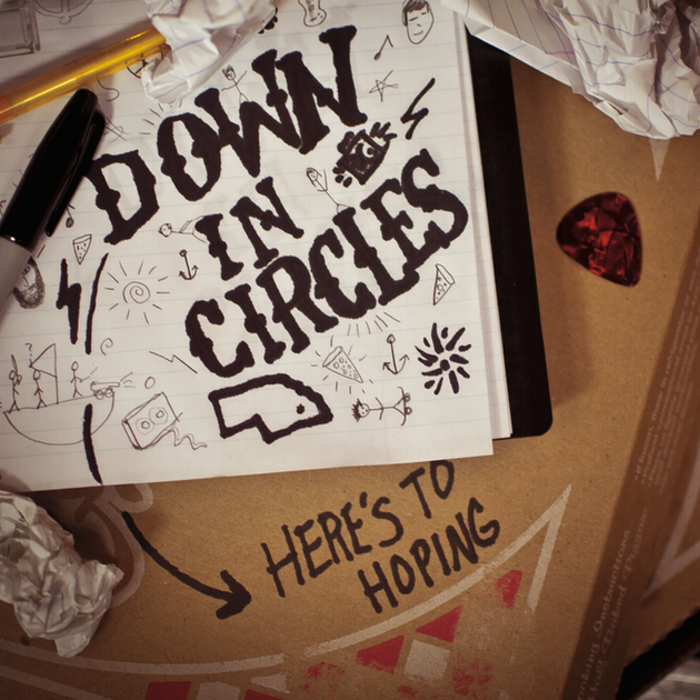 DOWN
IN
CIRCLES
HERE'S TO
HOPING